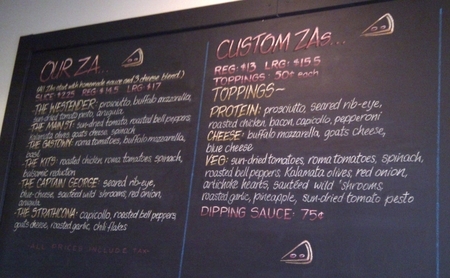 OUR ZA...
(All Zas start with homemade sauce and 3 cheese blend.)
REG $14.5 LRG $17
-THE WESTENDER: prosciutto, buffalo mozzarella,
sun-dried tomato pesto, arugula
-THE MAINST: sun-dried tomato, roasted bell peppers,
kalamata olives, goats cheese, spinach
-THE GASTOWN: roma tomatoes, buffalo mozzarella,
basil
-THE KITS: roasted chicken, roma tomatoes, spinach,
balsamic reduction
-THE CAPTAIN GEORGE: seared rib-eye,
blue-cheese, sautéed wild 'shrooms, red onion,
arugula
-THE STRATHCONA: capicollo, roasted bell peppers,
goats cheese, roasted garlic, chili flakes
ALL PRICES INCLUDE TAX
CUSTOM ZAs...
REG: $13 LRG: $15.5
TOPPINGS: 50¢ each
TOPPINGS~
PROTEIN: prosciutto, seared rib-eye,
roasted chicken, bacon, capicollo, pepperoni
CHEESE: buffalo mozzarella, goats cheese,
blue cheese
VEG: sun-dried tomatoes, roma tomatoes, spinach,
roasted bell peppers, Kalamata olives, red onion,
artichoke hearts, sautéed wild 'shrooms,
roasted garlic, pineapple, sun-dried tomato pesto
DIPPING SAUCE: 75¢